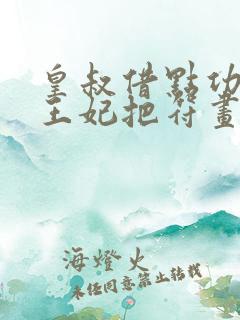 皇叔借點功
王妃把符畫
海燈火
未任同意禁止转载